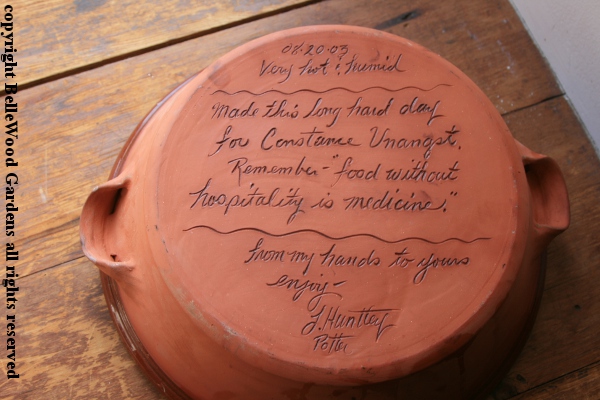 copyright BelleWood Gardens all rights reserved
08.20.03
Very hot & humid
Made this long hard day
for Constance Unangst.
Remember - "food without
hospitality is medicine."
From my hands to yours
enjoy -
J. Huntley
Potter